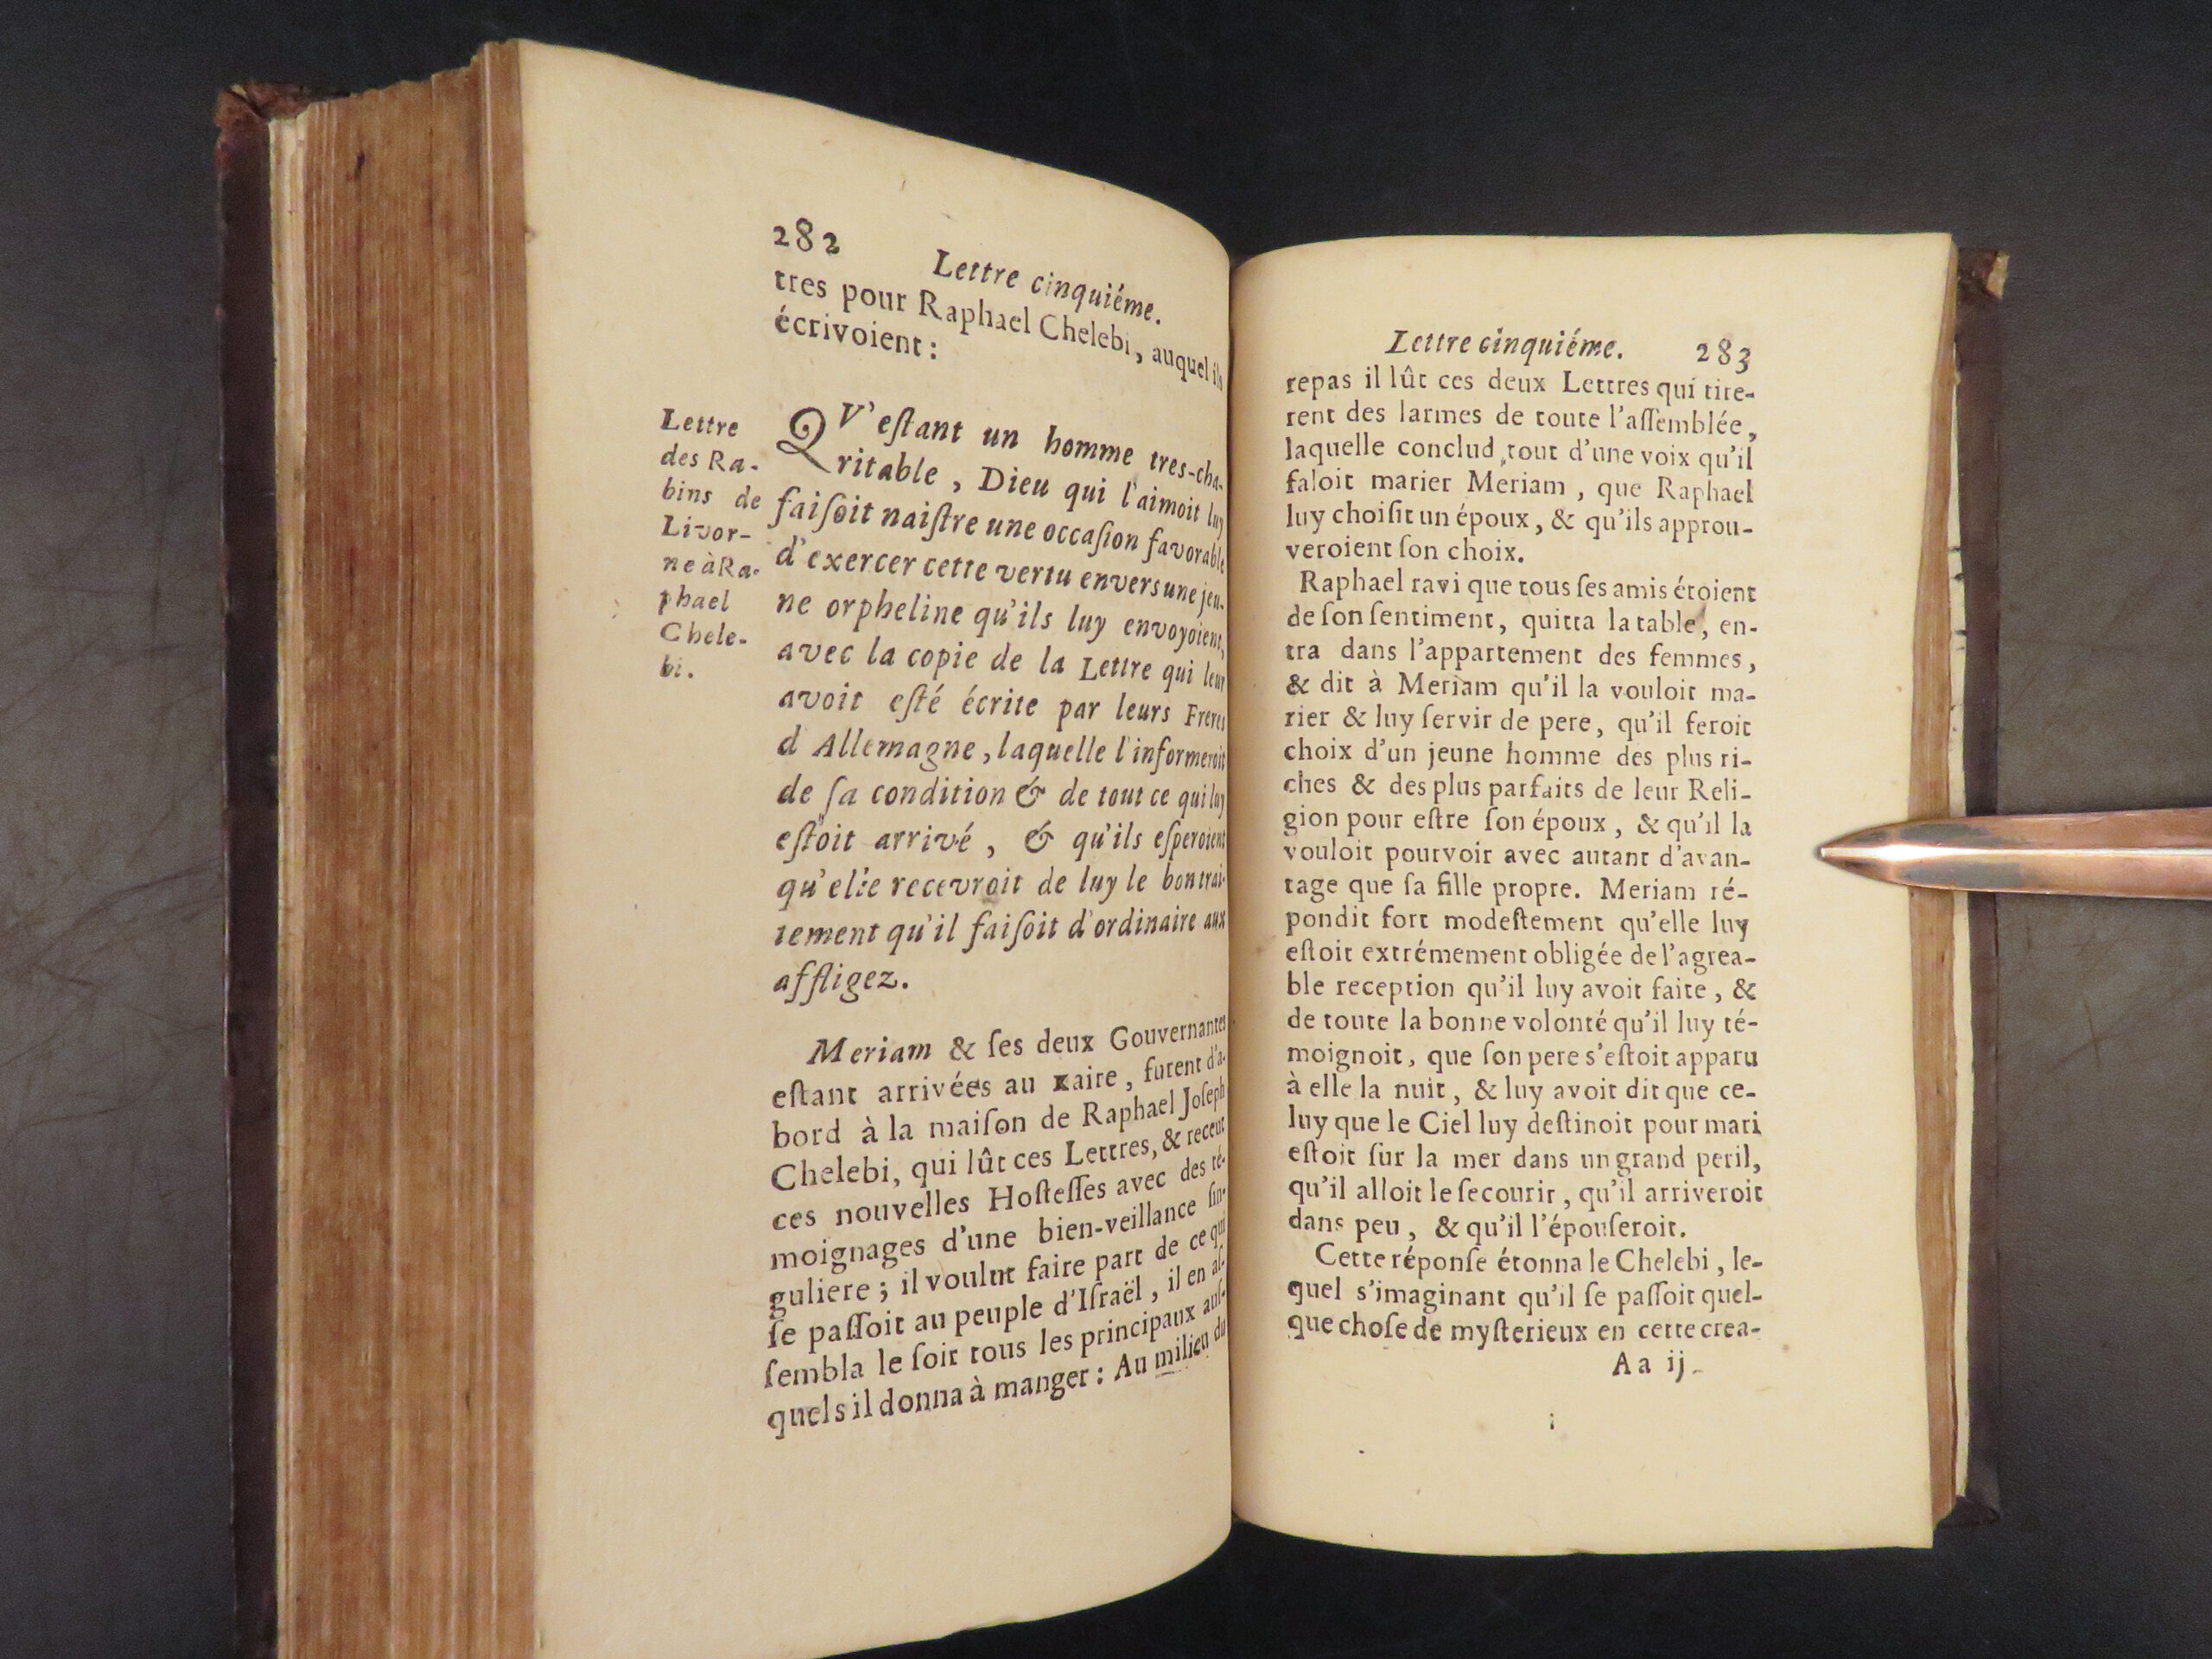 282
Lettre cinquiéme.
tres pour Raphael Chelebi, auquel ils
écrivoient :
Lettre
des Ra-
bins de
Livor-
ne à Ra-
phael
Chele-
bi.
QV'eſtant un homme tres-cha-
ritable, Dieu qui l'aimoit luy
faiſoit naiſtre une occaſion favorable
d'exercer cette vertu envers une jeu-
ne orpheline qu'ils luy envoyoient,
avec la copie de la Lettre qui leur
avoit eſté écrite par leurs Freres
d'Allemagne, laquelle l'informeroit
de ſa condition & de tout ce qui luy
eſtoit arrivé, & qu'ils eſperoient
qu'elle recevroit de luy le bon trai-
tement qu'il faiſoit d'ordinaire aux
affligez.
Meriam & ſes deux Gouvernantes
eſtant arrivées au Kaire, furent d'a-
bord à la maiſon de Raphael Joſeph
Chelebi, qui lût ces Lettres, & receut
ces nouvelles Hoſteſſes avec des té-
moignages d'une bien-veillance ſin-
guliere ; il voulut faire part de ce qui
ſe paſſoit au peuple d'Iſraël, il en aſ-
ſembla le ſoir tous les principaux auſ-
quels il donna à manger : Au milieu du
Lettre cinquiéme.
283
repas il lût ces deux Lettres qui tire-
rent des larmes de toute l'aſſemblée,
laquelle conclud tout d'une voix qu'il
faloit marier Meriam, que Raphael
luy choiſit un époux, & qu'ils approu-
veroient ſon choix.
Raphael ravi que tous ſes amis étoient
de ſon ſentiment, quitta la table, en-
tra dans l'appartement des femmes,
& dit à Meriam qu'il la vouloit ma-
rier & luy ſervir de pere, qu'il feroit
choix d'un jeune homme des plus ri-
ches & des plus parfaits de leur Reli-
gion pour eſtre ſon époux, & qu'il la
vouloit pourvoir avec autant d'avan-
tage que ſa fille propre. Meriam ré-
pondit fort modeſtement qu'elle luy
eſtoit extrémement obligée de l'agrea-
ble reception qu'il luy avoit faite, &
de toute la bonne volonté qu'il luy té-
moignoit, que ſon pere s'eſtoit apparu
à elle la nuit, & luy avoit dit que ce-
luy que le Ciel luy deſtinoit pour mari
eſtoit ſur la mer dans un grand peril,
qu'il alloit le ſecourir, qu'il arriveroit
dans peu, & qu'il l'épouſeroit.
Cette réponſe étonna le Chelebi, le-
quel s'imaginant qu'il ſe paſſoit quel-
que choſe de myſterieux en cette crea-
A a ij